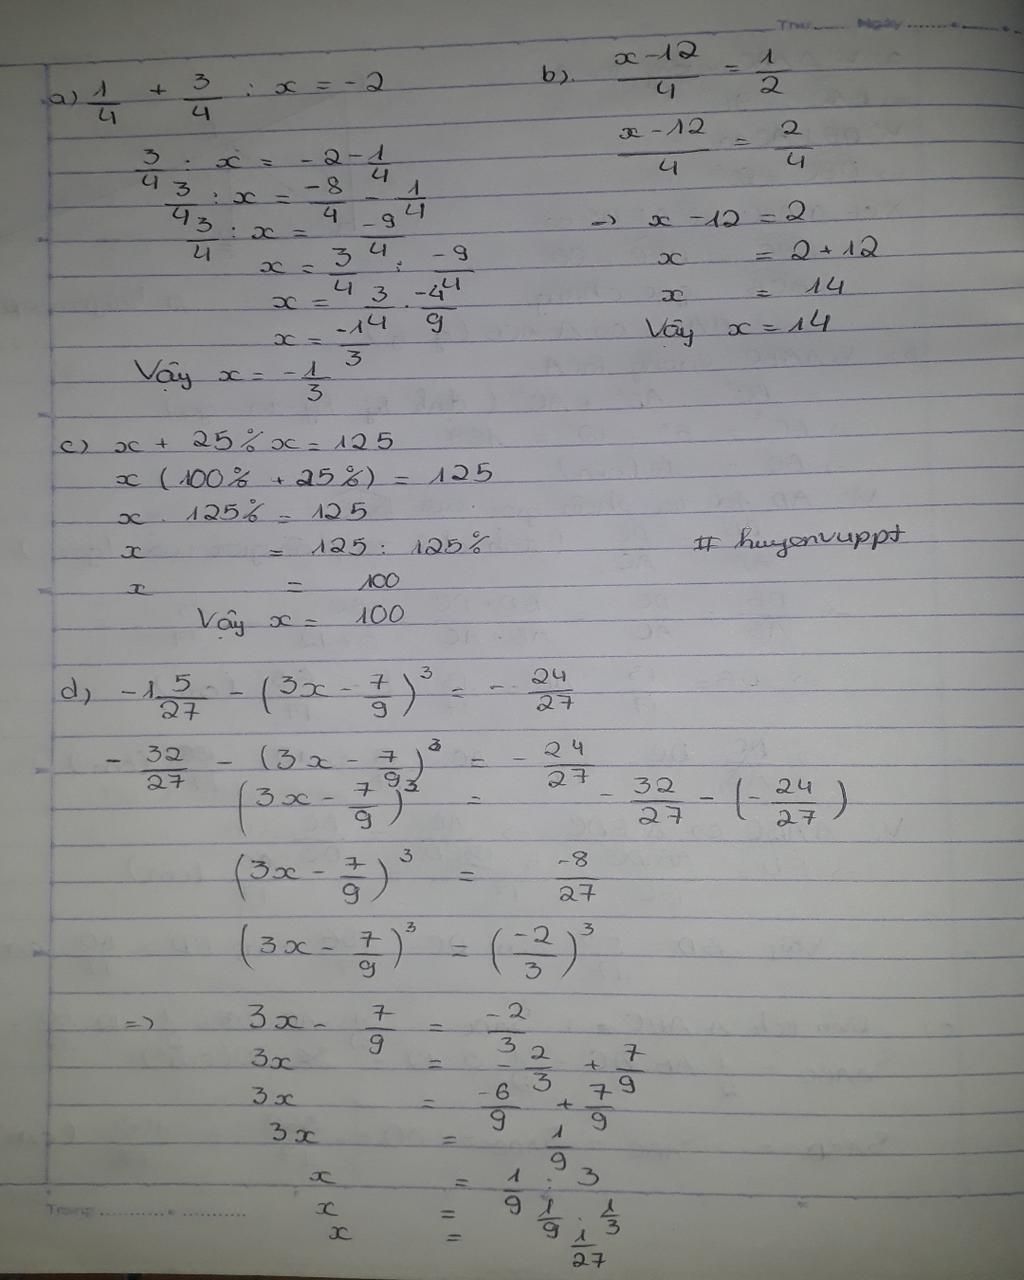 Thứ...... Ngày...............
a) 1/4 + 3/4 : x = -2
3/4 : x = -2 - 1/4
3/4 : x = -8/4 - 1/4
3/4 : x = -9/4
x = 3/4 : -9/4
x = 3/4 . -4/9
x = -1/3
Vậy x = -1/3
b). x-12/4 = 1/2
x-12/4 = 2/4
-> x - 12 = 2
x = 2 + 12
x = 14
Vây x = 14
c) x + 25% x = 125
x (100% + 25%) = 125
x . 125% = 125
x = 125 : 125%
x = 100
Vây x = 100
# huyenvuppt
d) -1 5/27 - (3x - 7/9)³ = - 24/27
- 32/27 - (3x - 7/9)³ = - 24/27
(3x - 7/9)³ = - 32/27 - (- 24/27)
(3x - 7/9)³ = -8/27
(3x - 7/9)³ = (-2/3)³
=> 3x - 7/9 = -2/3
3x = - 2/3 + 7/9
3x = -6/9 + 7/9
3x = 1/9
x = 1/9 : 3
x = 1/9 . 1/3
x = 1/27
Trang..............................